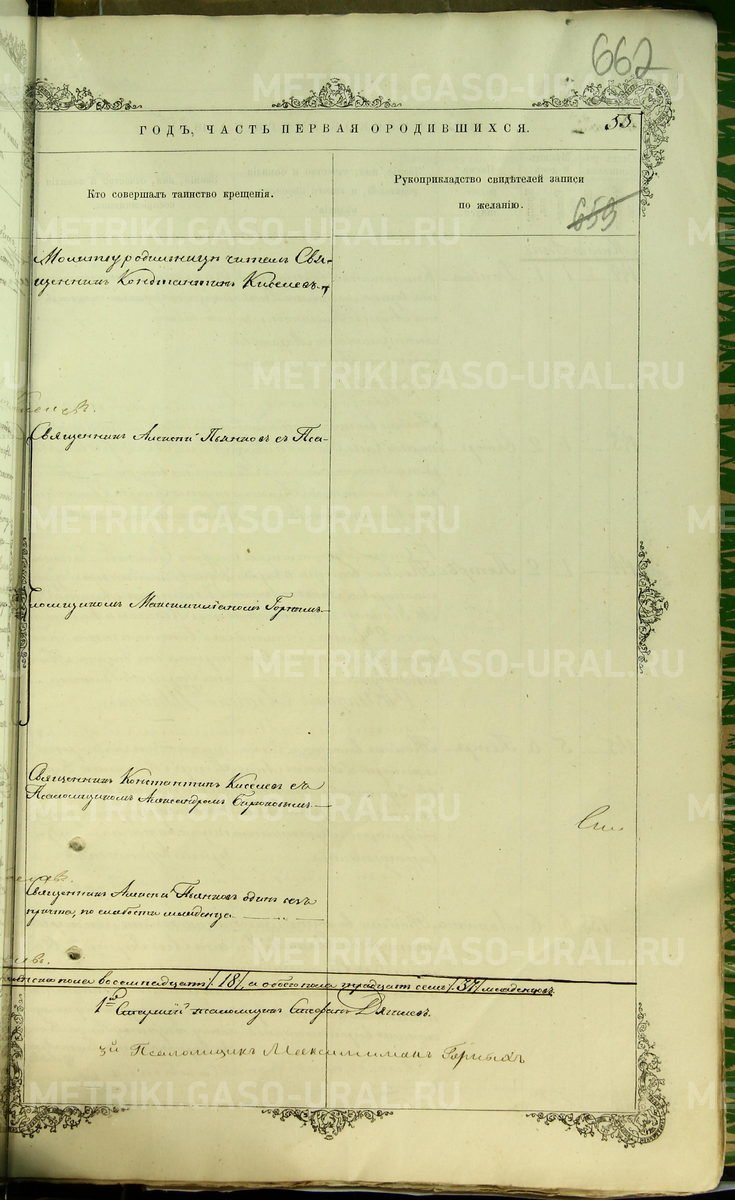 662
ГОДЪ, ЧАСТЬ ПЕРВАЯ О РОДИВШИХСЯ.
55.
Кто совершалъ таинство крещенія.
Рукоприкладство свидѣтелей записи
по желанію.
659
Молитву родильницѣ читалъ Свя-
щенникъ Константинъ Киселевъ
Священникъ Алексій Пьянковъ съ Пса-
ломщикомъ Максимиліаномъ Горныхъ
Священникъ Константинъ Киселевъ съ
Псаломщикомъ Александромъ Бирюковымъ
Священникъ Алексій Пьянковъ одинъ безъ
причта, по слабости младенца
пола восемнадцать /18/, а обоего пола тридцать семь /37/ младенцевъ
1й Старшій псаломщикъ Стефанъ Дягилев.
Псаломщикъ Максимиліанъ Горныхъ
METRIKI.GASO-URAL.RU